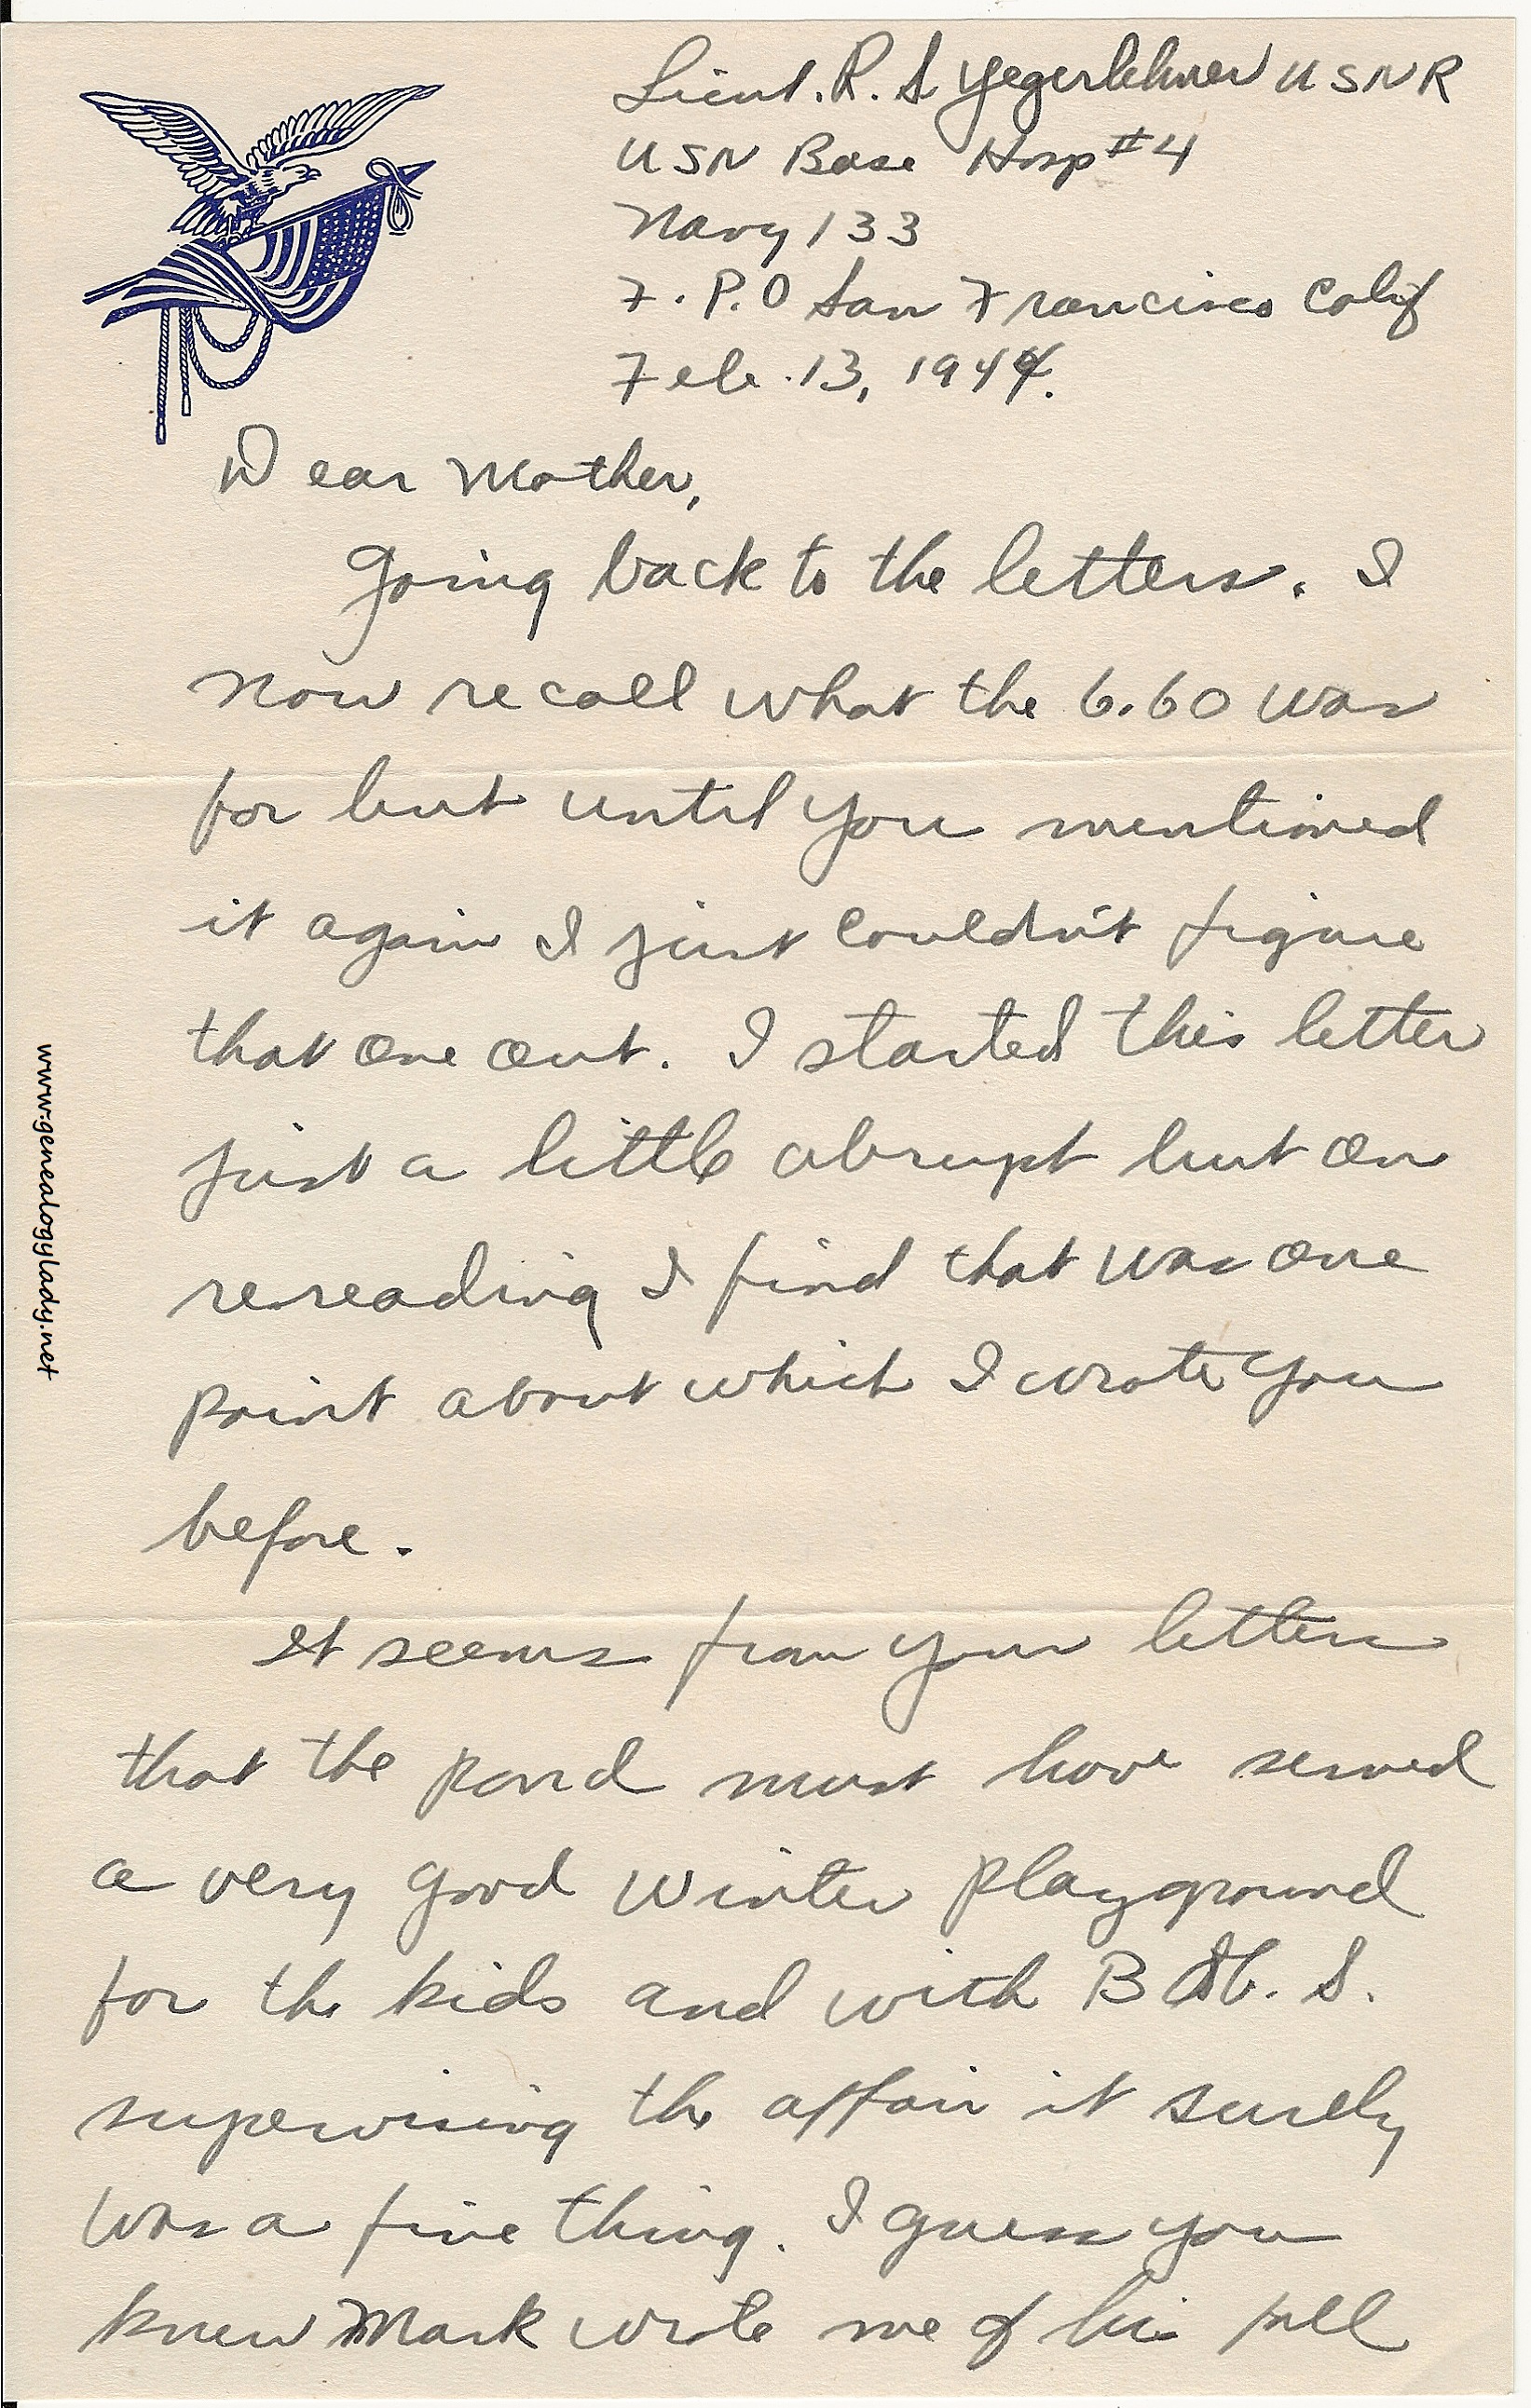 Lieut. R. S Yegerlehner USNR
USN Base Hosp #4
Navy 133
F. P.O San Francisco Calif
Feb. 13, 1944.
Dear Mother,
Going back to the letters. I
now recall what the 6.60 was
for but until you mentioned
it again I just couldn't figure
that one out. I started this letter
just a little abrupt but on
rereading I find that was one
point about which I wrote you
before.
It seems from your letters
that the pond must have served
a very good winter playground
for the kids and with B S.
supervising the affair it surely
was a fine thing. I guess you
knew Mark wrote me of his fall
www.genealogylady.net